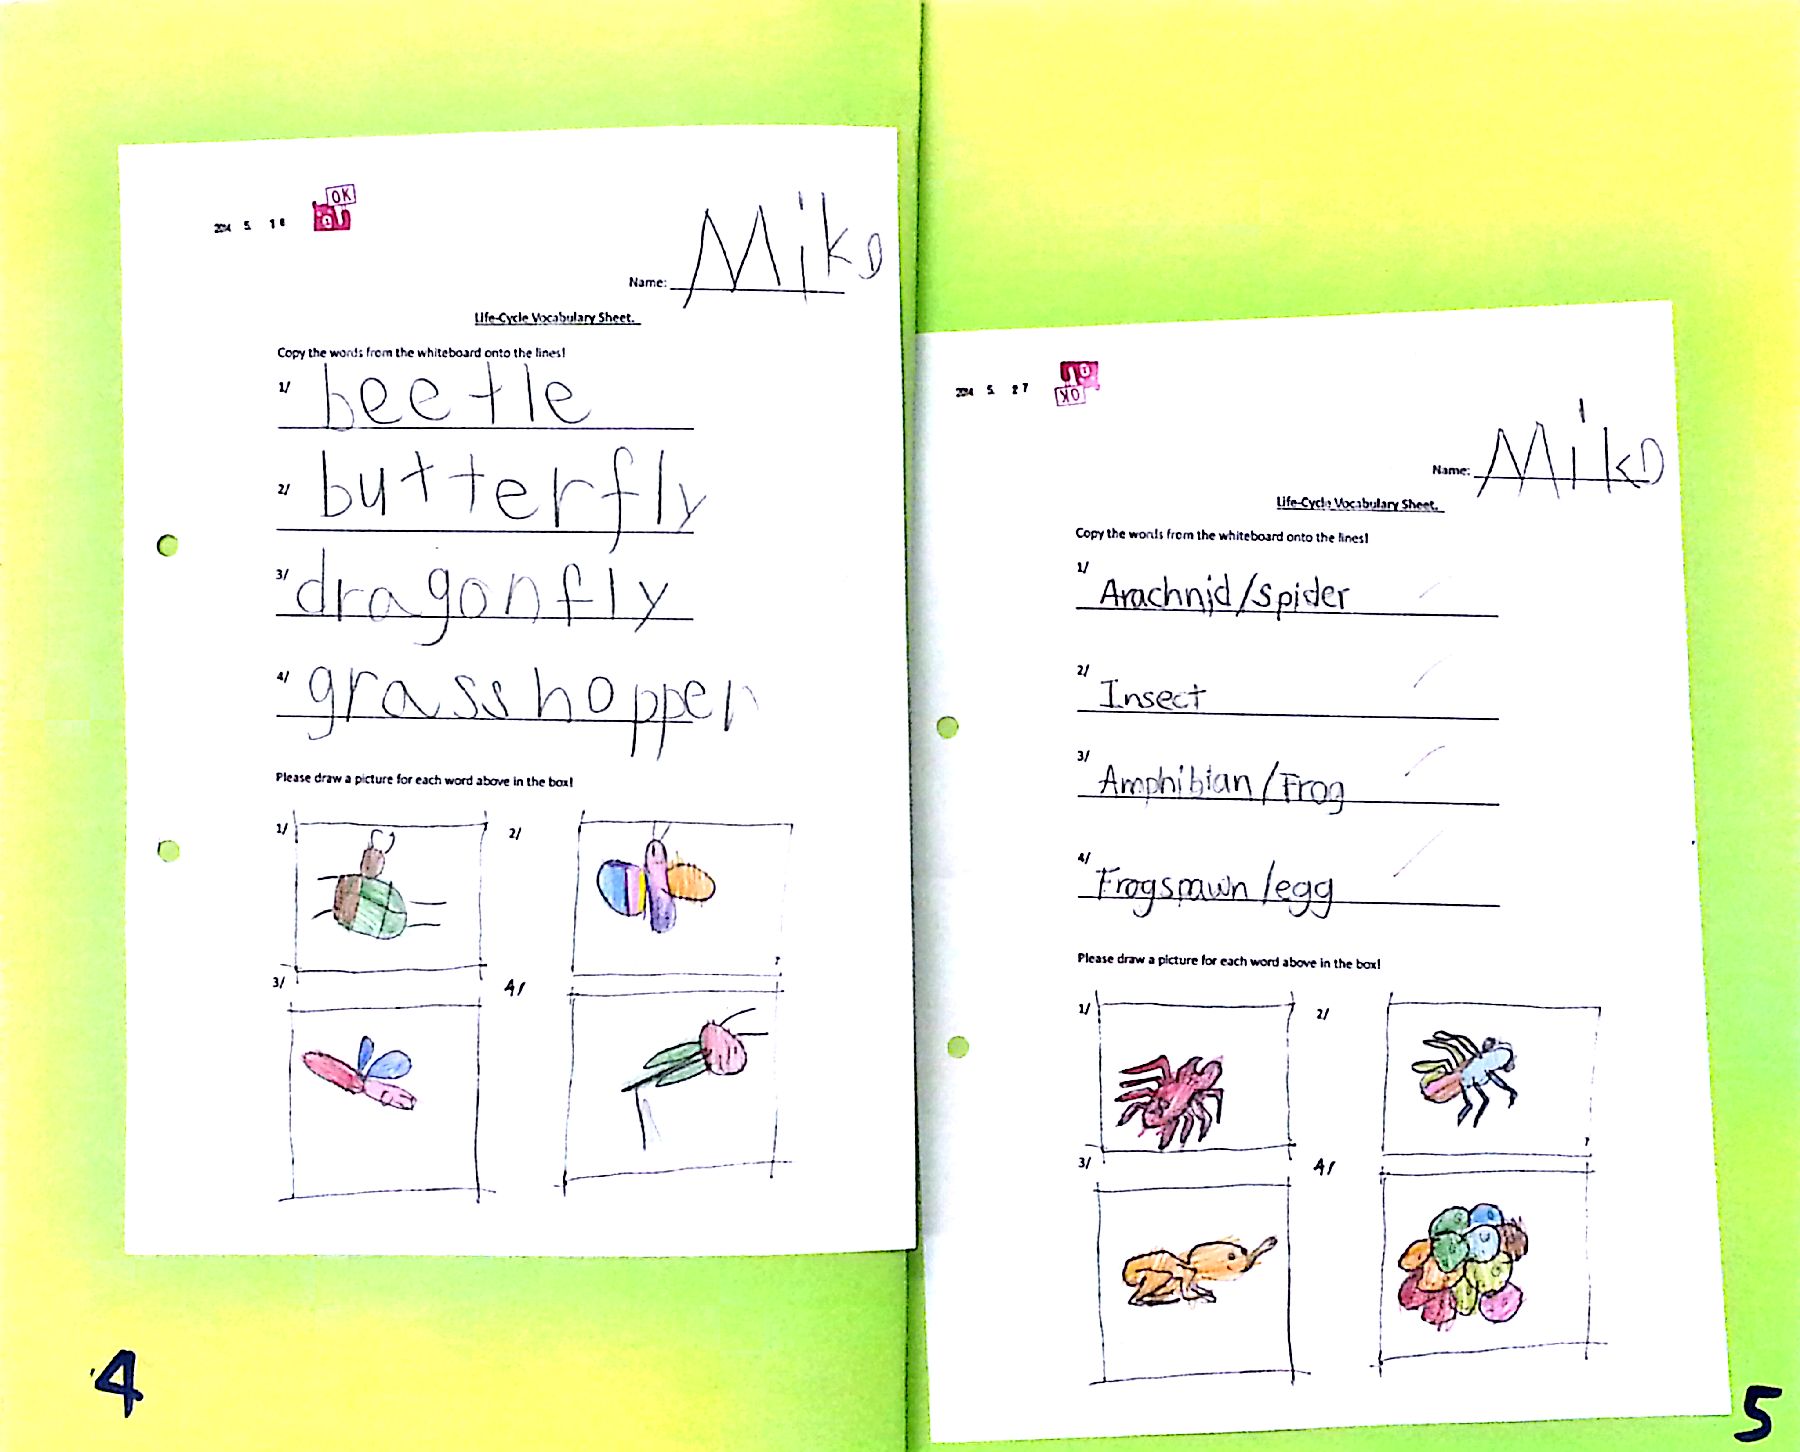 2014 5. 16
OK
Name: Miko
Life-Cycle Vocabulary Sheet.
Copy the words from the whiteboard onto the lines!
1/ beetle
2/ butterfly
3/ dragonfly
4/ grasshopper
Please draw a picture for each word above in the box!
1/ 2/
3/ 4/
4
2014 5. 27
OK
Name: Miko
Life-Cycle Vocabulary Sheet.
Copy the words from the whiteboard onto the lines!
1/ Arachnid/spider
2/ Insect
3/ Amphibian/Frog
4/ Frogspawn/egg
Please draw a picture for each word above in the box!
1/ 2/
3/ 4/
5